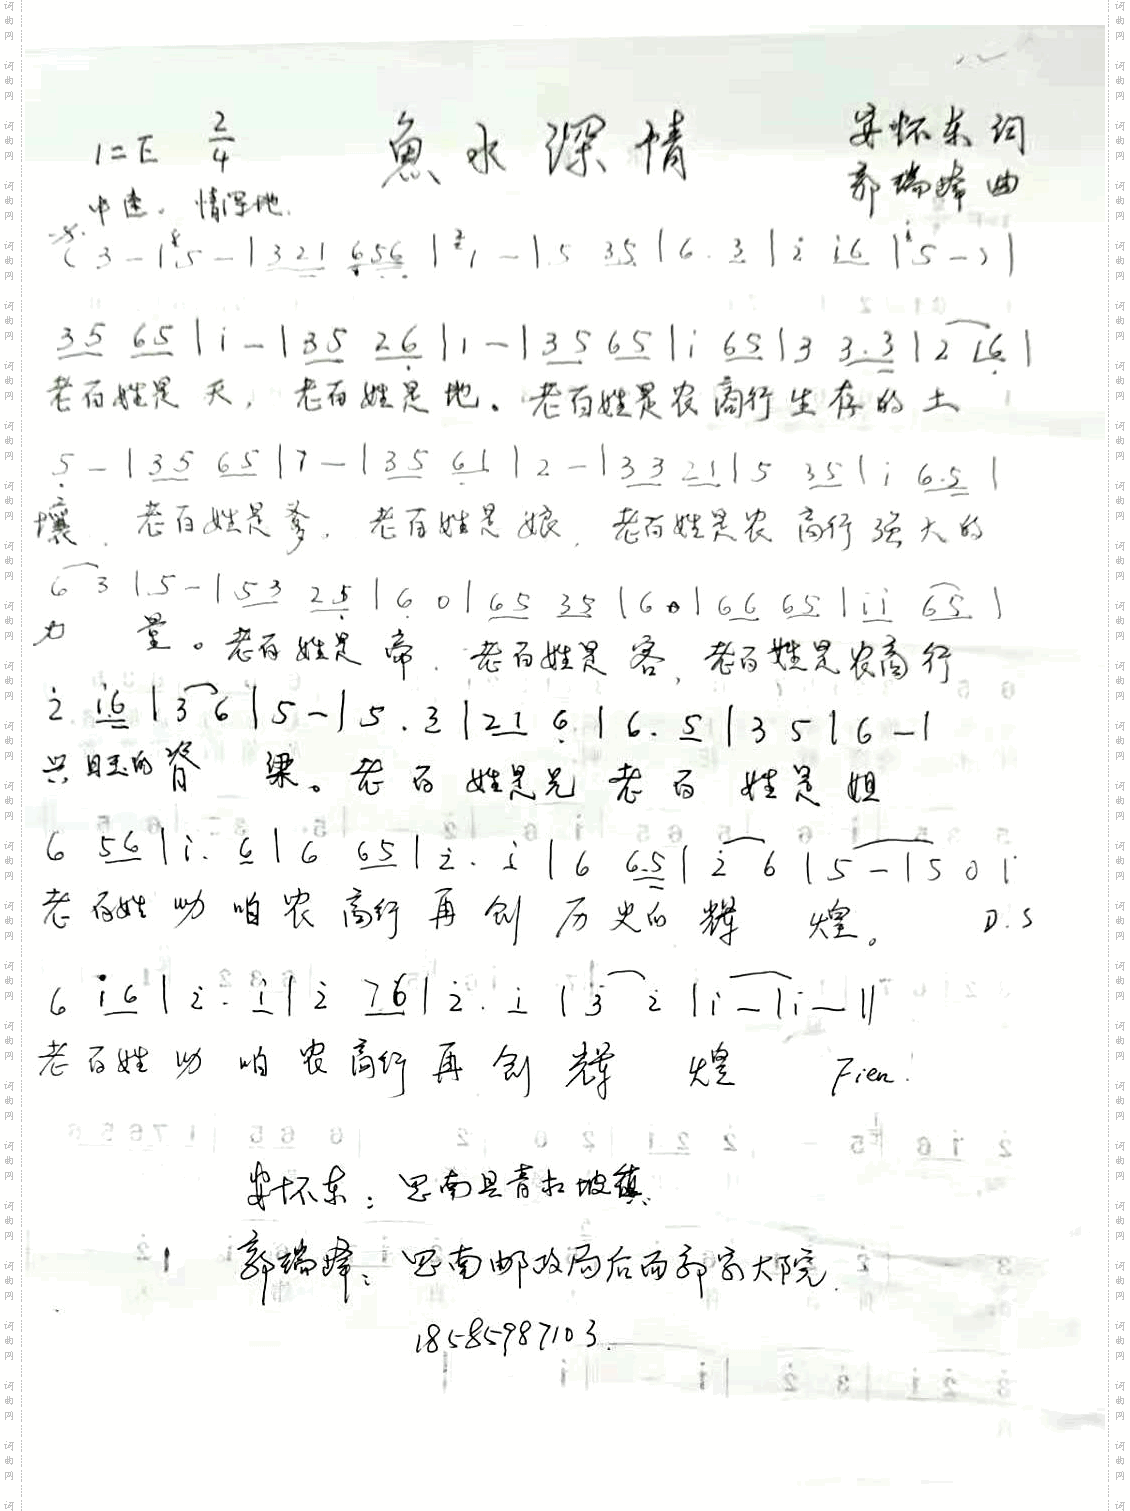 1=E 2/4 魚水深情 安怀东 词
中速。情深地. 郭瑞峰 曲
(3 - | 5 - | 3 21 656 | 1 - | 5 35 | 6. 3 | 2̇ i6 | 5 - ) |
35 65 | i - | 35 26 | 1 - | 35 65 | i 65 | 3 3.3 | 2 16 |
老百姓是天，老百姓是地。老百姓是农商行生存的土
5 - | 35 65 | 7 - | 35 61 | 2 - | 33 21 | 5 35 | i 6.5 |
壤，老百姓是爹，老百姓是娘，老百姓是农商行强大的
6 3 | 5 - | 53 25 | 6 0 | 65 35 | 6 0 | 66 65 | ii 65 |
力量。老百姓是帝，老百姓是客，老百姓是农商行
2̇ i6 | 3 6 | 5 - | 5. 3 | 21 6 | 6. 5 | 3 5 | 6 - |
兴旺的脊梁。老百姓是兄老百姓是姐
6 56 | i. 6 | 6 65 | 2̇. i | 6 6.5 | 2̇ 6 | 5 - | 5 0 |
老百姓助咱农商行再创历史的辉煌。 D.S
6 i6 | 2̇. i | 2̇ 76 | 2̇. i | 3̇ 2̇ | i - | i - ||
老百姓助咱农商行再创辉煌 Fien.
安怀东：思南县青杠坡镇.
郭瑞峰：思南邮政局后面郭家大院.
18585987103.
词曲网